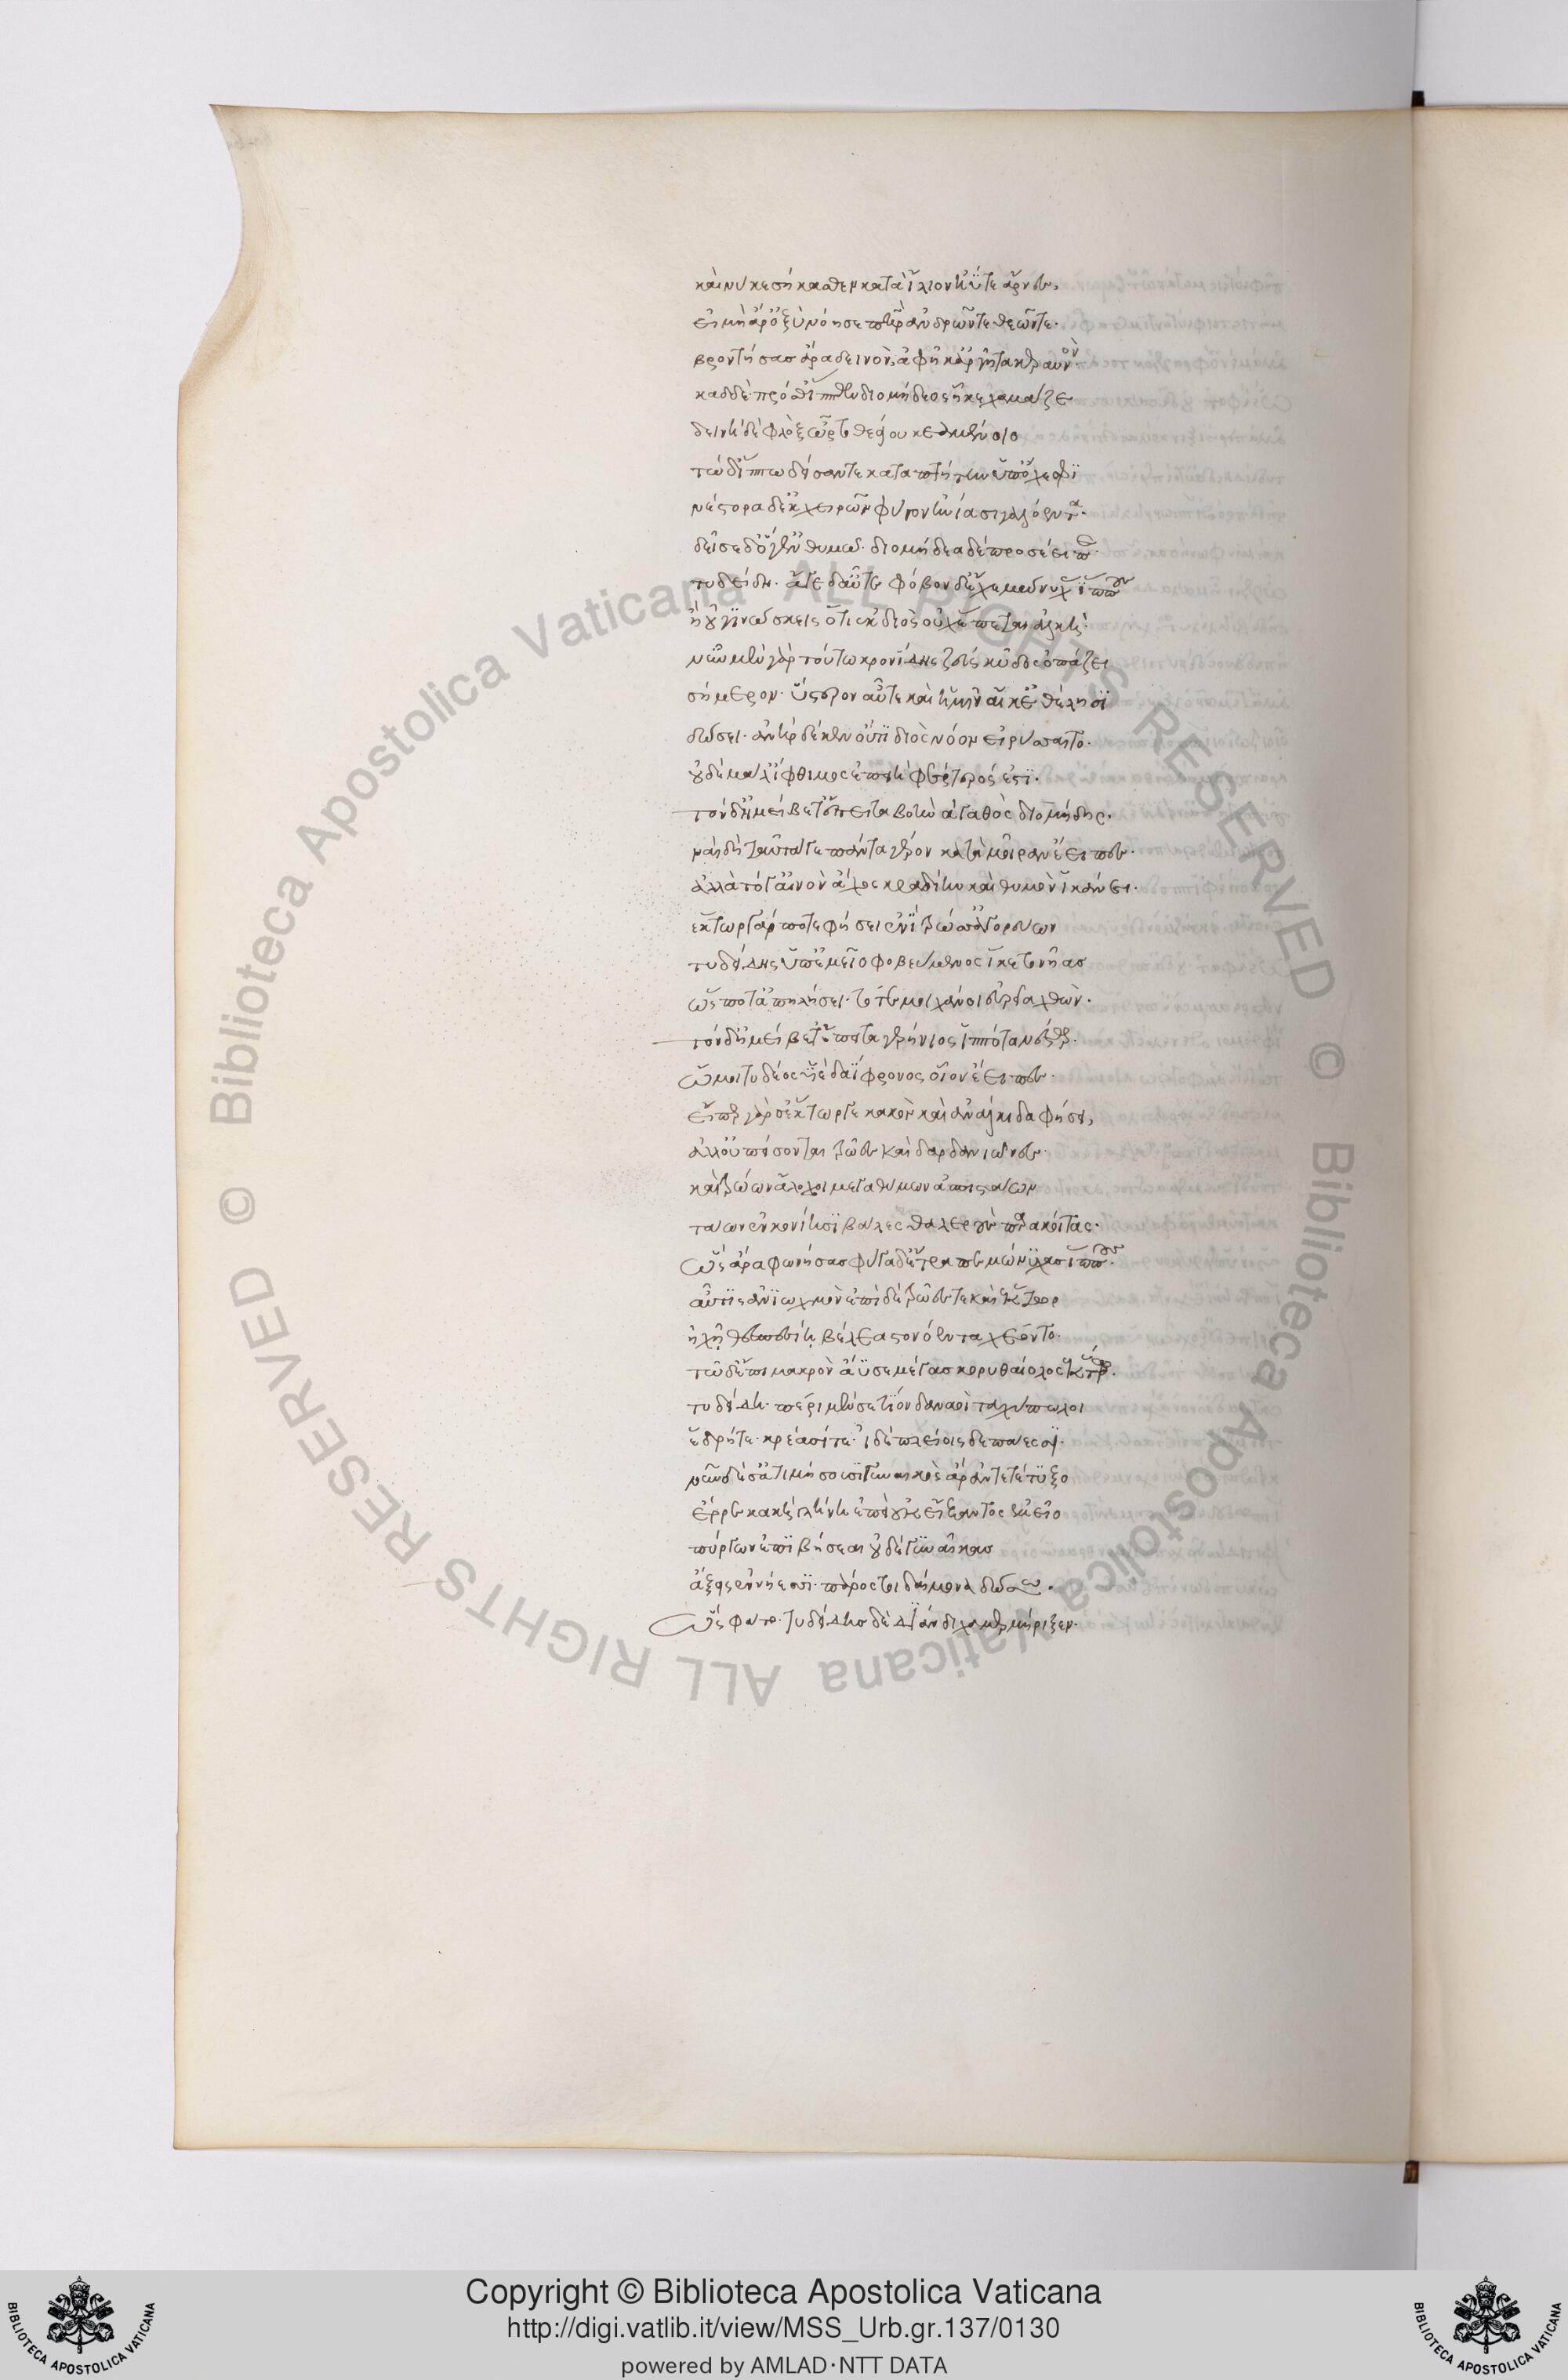 καί νύ κε σήκασθεν κατὰ ἴλιον ἠΰτε ἄρνες,
εἰ μὴ ἄρ ὀξὺ νόησε πατὴρ ἀνδρῶν τε θεῶν τε.
βροντήσας δ' ἄρα δεινὸν, ἀφῆκ' ἀργῆτα κεραυνόν.
καδδὲ πρόσθ' ἵππων διομήδεος ἧκε χαμᾶζε
δεινὴ δὲ φλὸξ ὦρτο θεείου καιομένοιο
τὼ δ' ἵππω δείσαντε καταπτήτην ὑπ' ὄχεσφι
νέστορα δ' ἐκ χειρῶν φύγον ἡνία σιγαλόεντα.
δεῖσε δ' ὅγ' ἐν θυμῶ. διομήδεα δὲ προσέειπε.
τυδείδη. ἄγε δ' αὖτε φόβον δ' ἔχε μώνυχας ἵππους
ἢ οὐ γινώσκεις ὅτι ἐκ διὸς οὐχ ἕπεται ἀλκή.
νῦν μὲν γὰρ τούτω κρονίδης ζεὺς κῦδος ὀπάζει
σήμερον. ὕστερον αὖτε καὶ ἡμῖν αἴ κ' ἐθέλησι
δώσει. ἀνὴρ δέ κεν οὔτι διὸς νόον εἰρύσαιτο.
οὐδὲ μάλ' ἴφθιμος ἐπειὴ φέρτερός ἐστι.
τὸν δ' ἠμείβετ' ἔπειτα βοὴν ἀγαθὸς διομήδης.
ναὶ δὴ ταῦτά γε πάντα γέρον κατὰ μοῖραν ἔειπες.
ἀλλὰ τόγ' αἰνὸν ἄχος κραδίην καὶ θυμὸν ἱκάνει.
ἕκτωρ γάρ ποτε φήσει ἐνὶ τρώεσσ' ἀγορεύων
τυδείδης ὑπ' ἐμεῖο φοβεύμενος ἵκετο νῆας
ὥς ποτ' ἀπειλήσει. τότε μοι χάνοι εὐρεῖα χθών.
τὸν δ' ἠμείβετ' ἔπειτα γερήνιος ἱππότα νέστωρ.
ὤ μοι τυδέος υἱὲ δαΐφρονος οἷον ἔειπες.
εἴπερ γάρ σ' ἕκτωρ γε κακὸν καὶ ἀνάλκιδα φήσει,
ἀλλ' οὐ πείσονται τρῶες καὶ δαρδανίωνες.
καὶ τρώων ἄλοχοι μεγαθύμων ἀσπιστάων
τάων ἐν κονίησι βάλες θαλεροὺς παρακοίτας.
ὣς ἄρα φωνήσας φύγαδ' ἔτραπε μώνυχας ἵππους.
αὖτις ἀν' ἰωχμὸν ἐπὶ δὲ τρῶές τε καὶ ἕκτωρ
ἠχῇ θεσπεσίῃ βέλεα στονόεντα χέοντο.
τῶ δ' ἐπὶ μακρὸν ἄϋσε μέγας κορυθαίολος ἕκτωρ.
τυδείδη. περὶ μέν σε τίον δαναοὶ ταχύπωλοι
ἕδρη τε. κρέασί τε. ἰδὲ πλείοις δεπάεσσι.
νῦν δέ σ' ἀτιμήσουσι γυναικὸς ἄρ' ἀντετέτυξο
ἔρρε κακὴ γλήνη ἐπεὶ οὐκ εἴξαντος ἐμεῖο
πύργων ἐπιβήσεαι οὐδὲ γυναῖκας
ἄξεις ἐν νήεσσι. πάρος τοι δαίμονα δώσω.
ὣς φάτο. τυδείδης δὲ διάνδιχα μερμήριξεν.